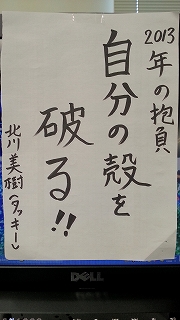 2013年の抱負
自分の殻を
破る!!
北川美樹(タッキー)
DELL